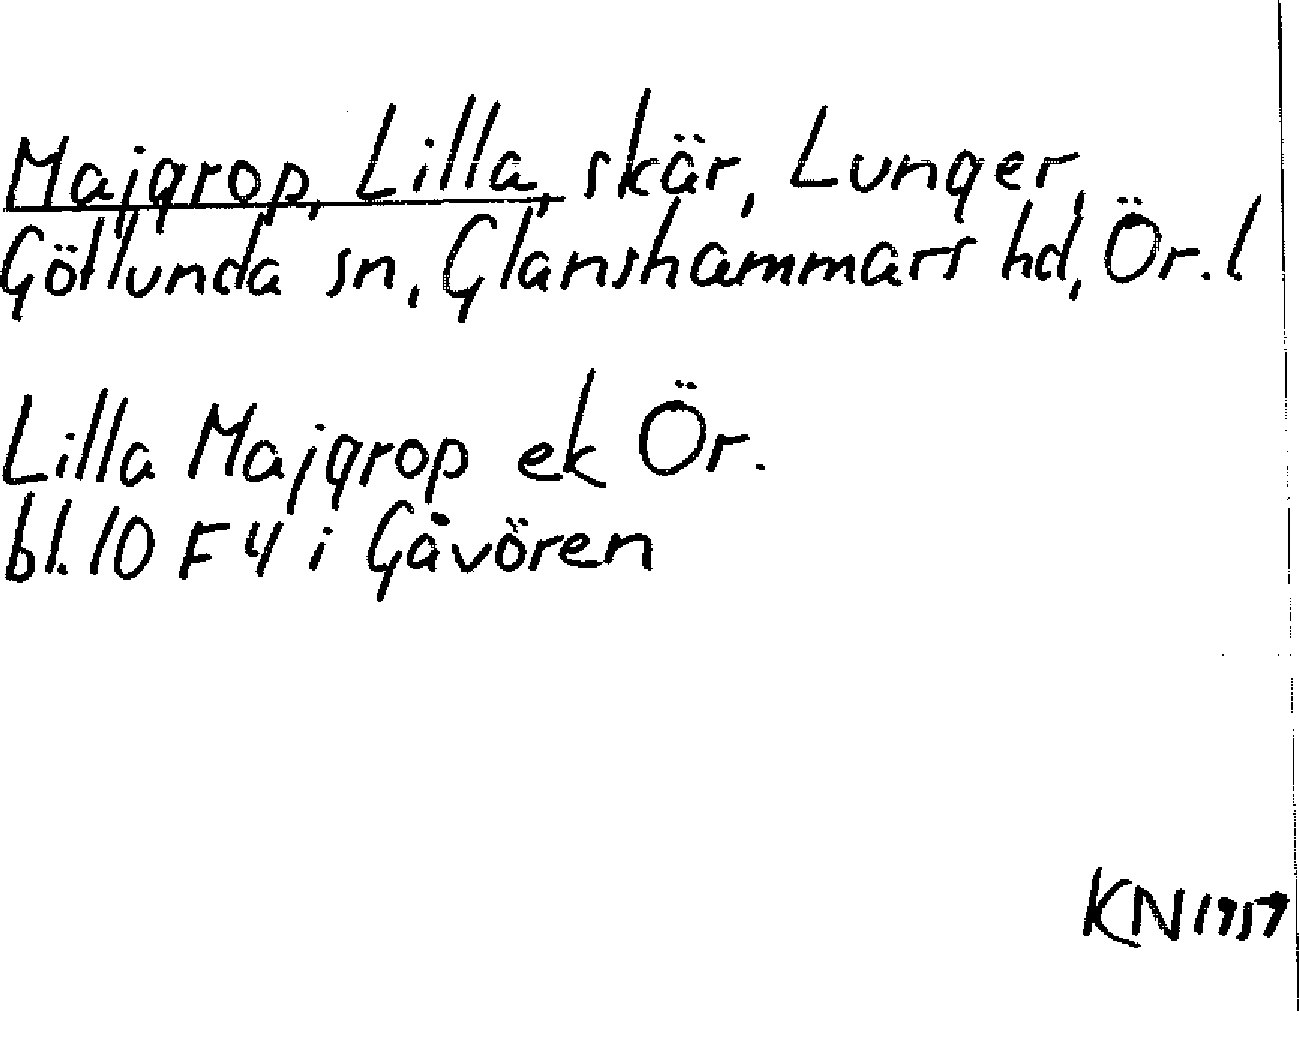 Majgrop, Lilla, skär, Lunger,
Götlunda sn, Glanshammars hd, Ör. l
Lilla Majgrop ek Ör.
bl. 10 F 4 i Gåvören
KN 1959